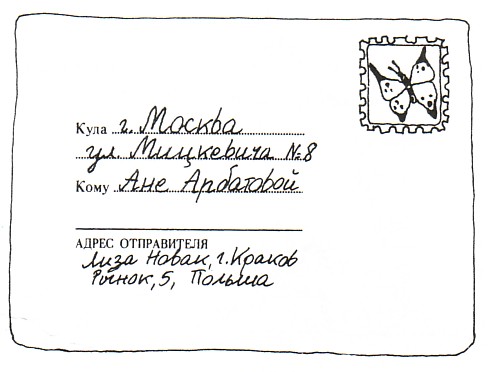 Кула г. Москва
ул. Мицкевича №8
Кому Ане Арбатовой
АДРЕС ОТПРАВИТЕЛЯ
Лиза Новак, г. Краков
Рынок, 5, Польша